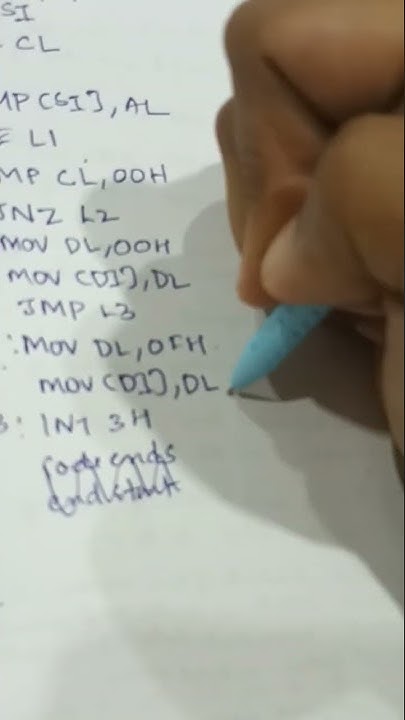 SI
CL
MP [SI], AL
E L1
MP CL, 00H
JNZ L2
MOV DL, 00H
MOV [DI], DL
JMP L3
: MOV DL, 0FH
MOV [DI], DL
3: INT 3H
code ends
end start